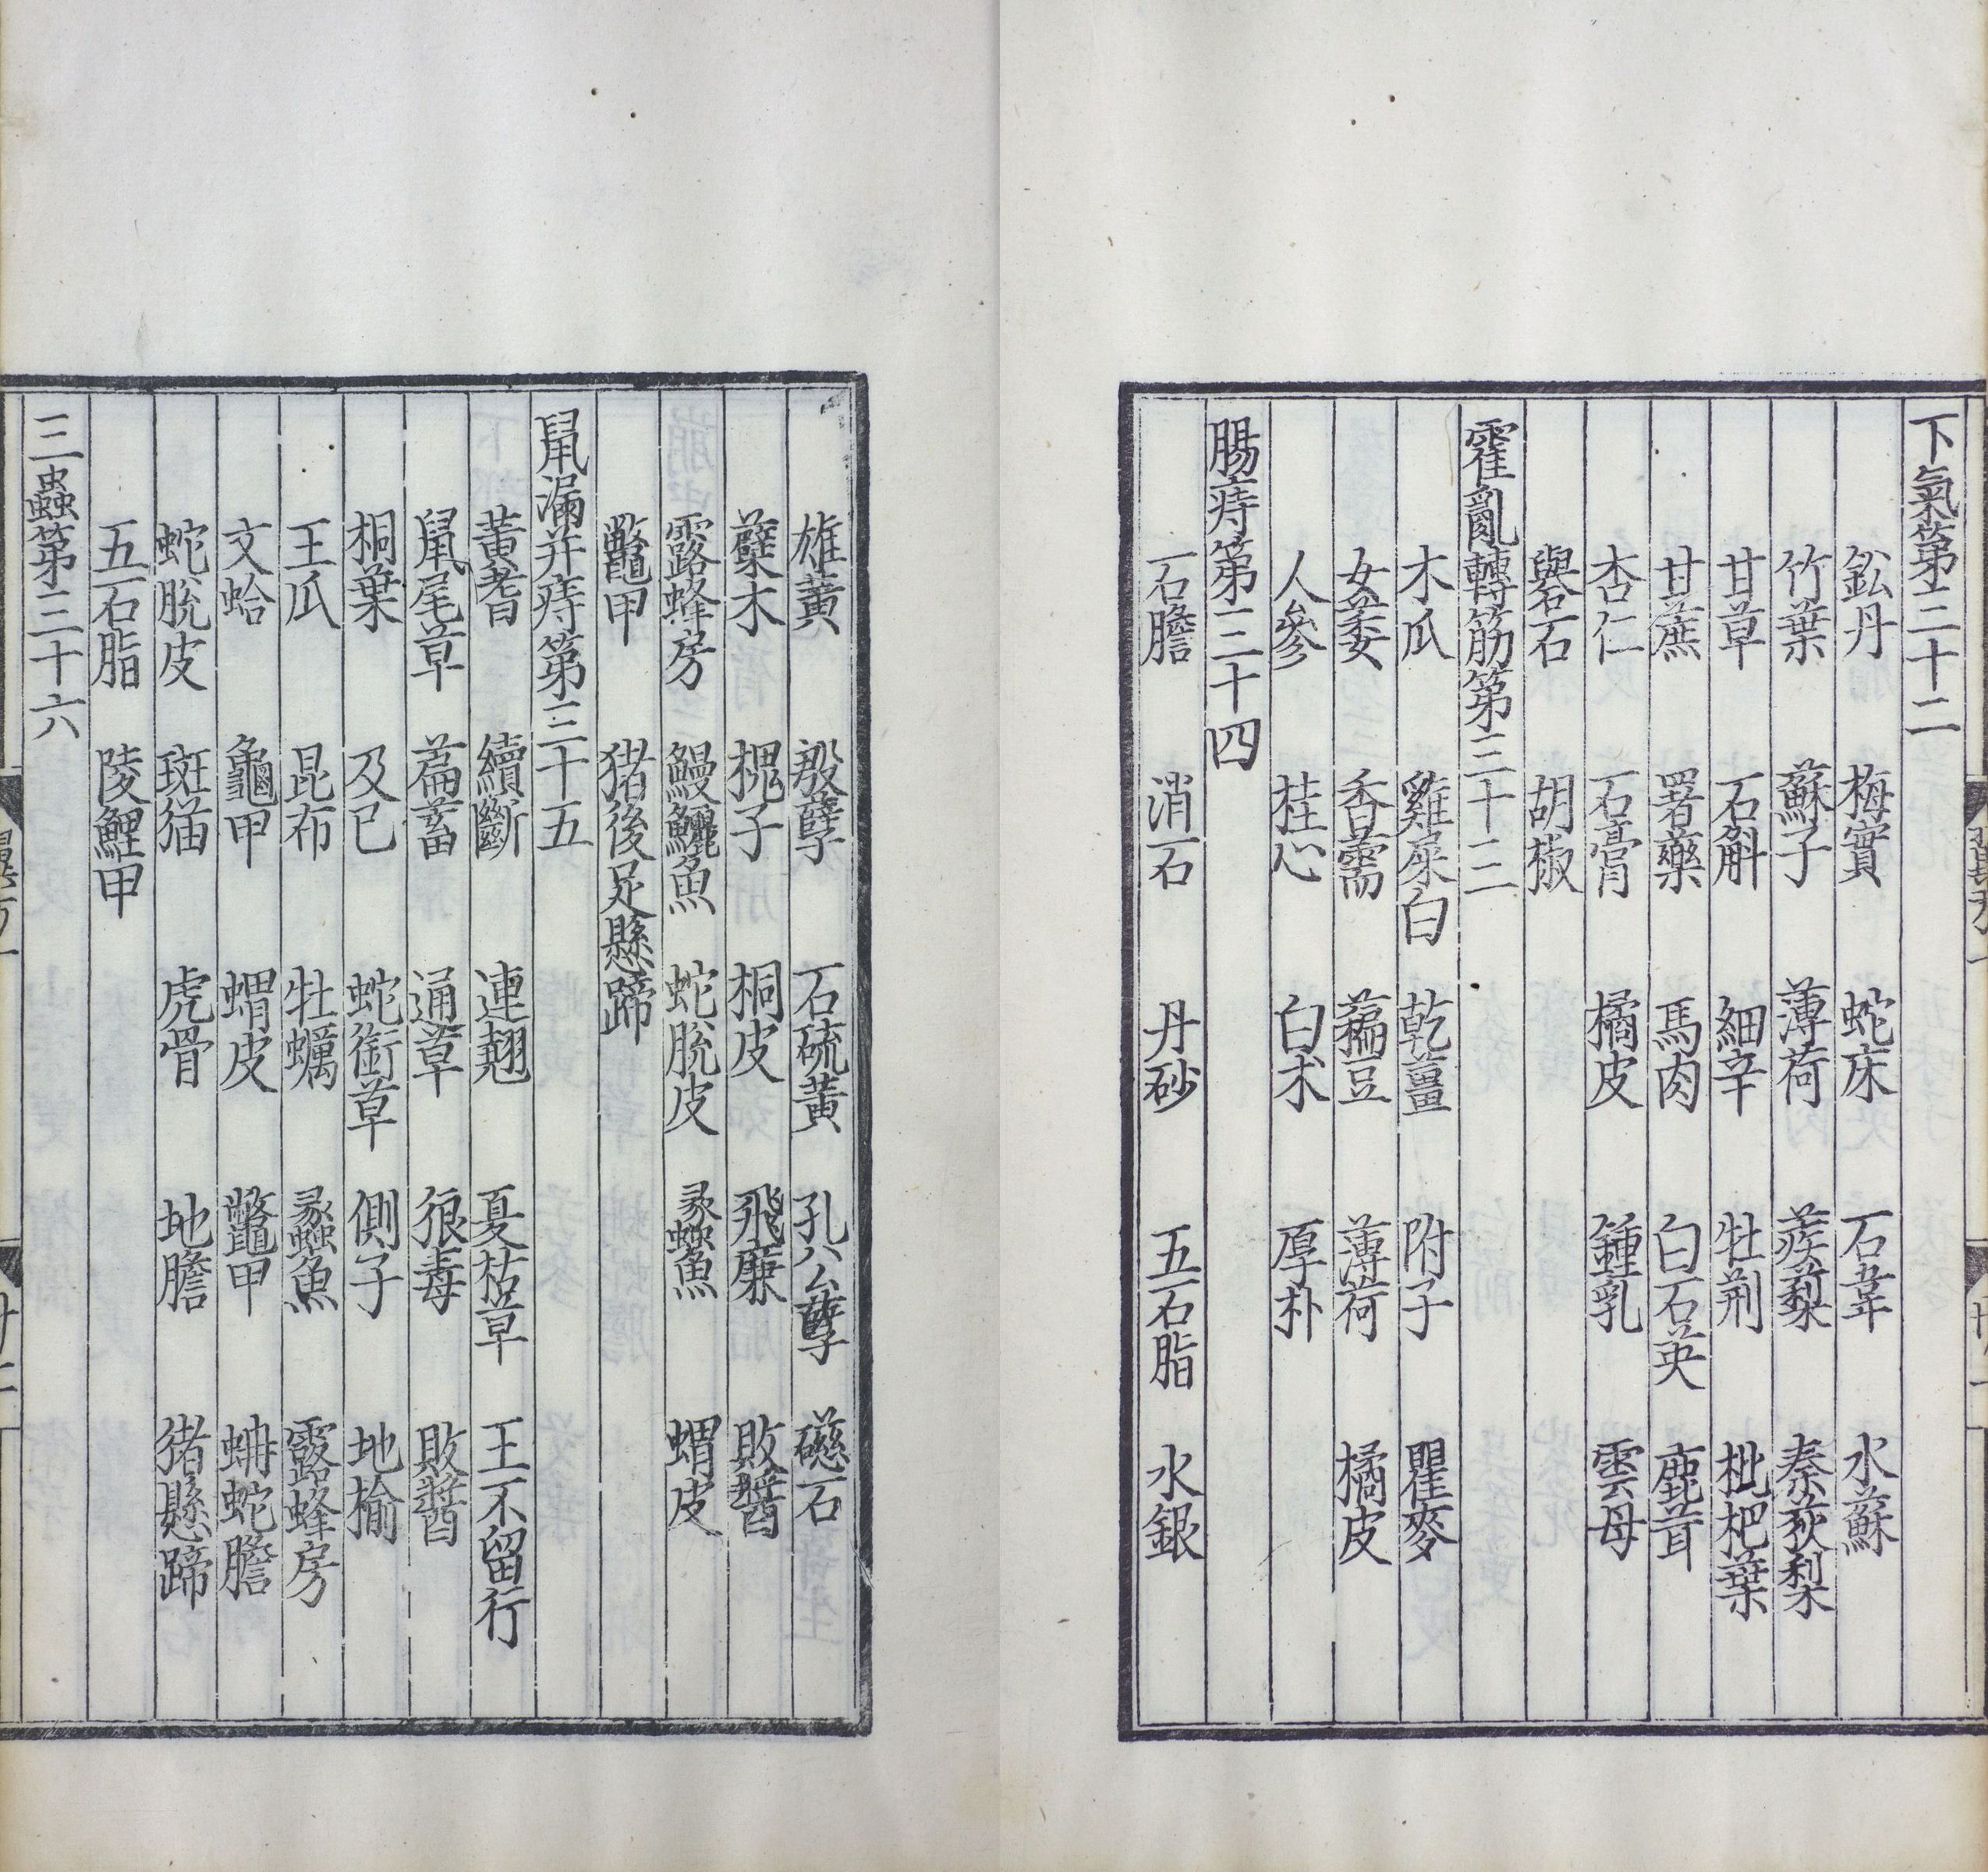 下氣第三十二
鈆丹 梅實 蛇床 石韋 水蘇
竹葉 蘇子 薄荷 蒺蔾 秦荻梨
甘草 石斛 細辛 牡荆 枇杷葉
甘蔗 署藥 馬肉 白石英 鹿茸
杏仁 石膏 橘皮 鍾乳 雲母
礜石 胡椒
霍亂轉筋第三十三
木瓜 雞屎白 乾薑 附子 瞿麥
女萎 香薷 藊豆 薄荷 橘皮
人參 桂心 白术 厚朴
腸痔第三十四
石膽 消石 丹砂 五石脂 水銀
雄黃 殷孽 石硫黃 孔公孽 磁石
蘗木 槐子 桐皮 飛廉 敗醬
露蜂房 鰻鱺魚 蛇脫皮 蠡魚 蝟皮
鼈甲 猪後足懸蹄
鼠漏并痔第三十五
黃耆 續斷 連翹 夏枯草 王不留行
鼠尾草 萹蓄 通草 狼毒 敗醬
桐葉 及已 蛇銜草 側子 地榆
王瓜 昆布 牡蠣 蠡魚 露蜂房
文蛤 龜甲 蝟皮 鼈甲 蚺蛇膽
蛇脫皮 斑猫 虎骨 地膽 猪懸蹄
五石脂 陵鯉甲
三蟲第三十六